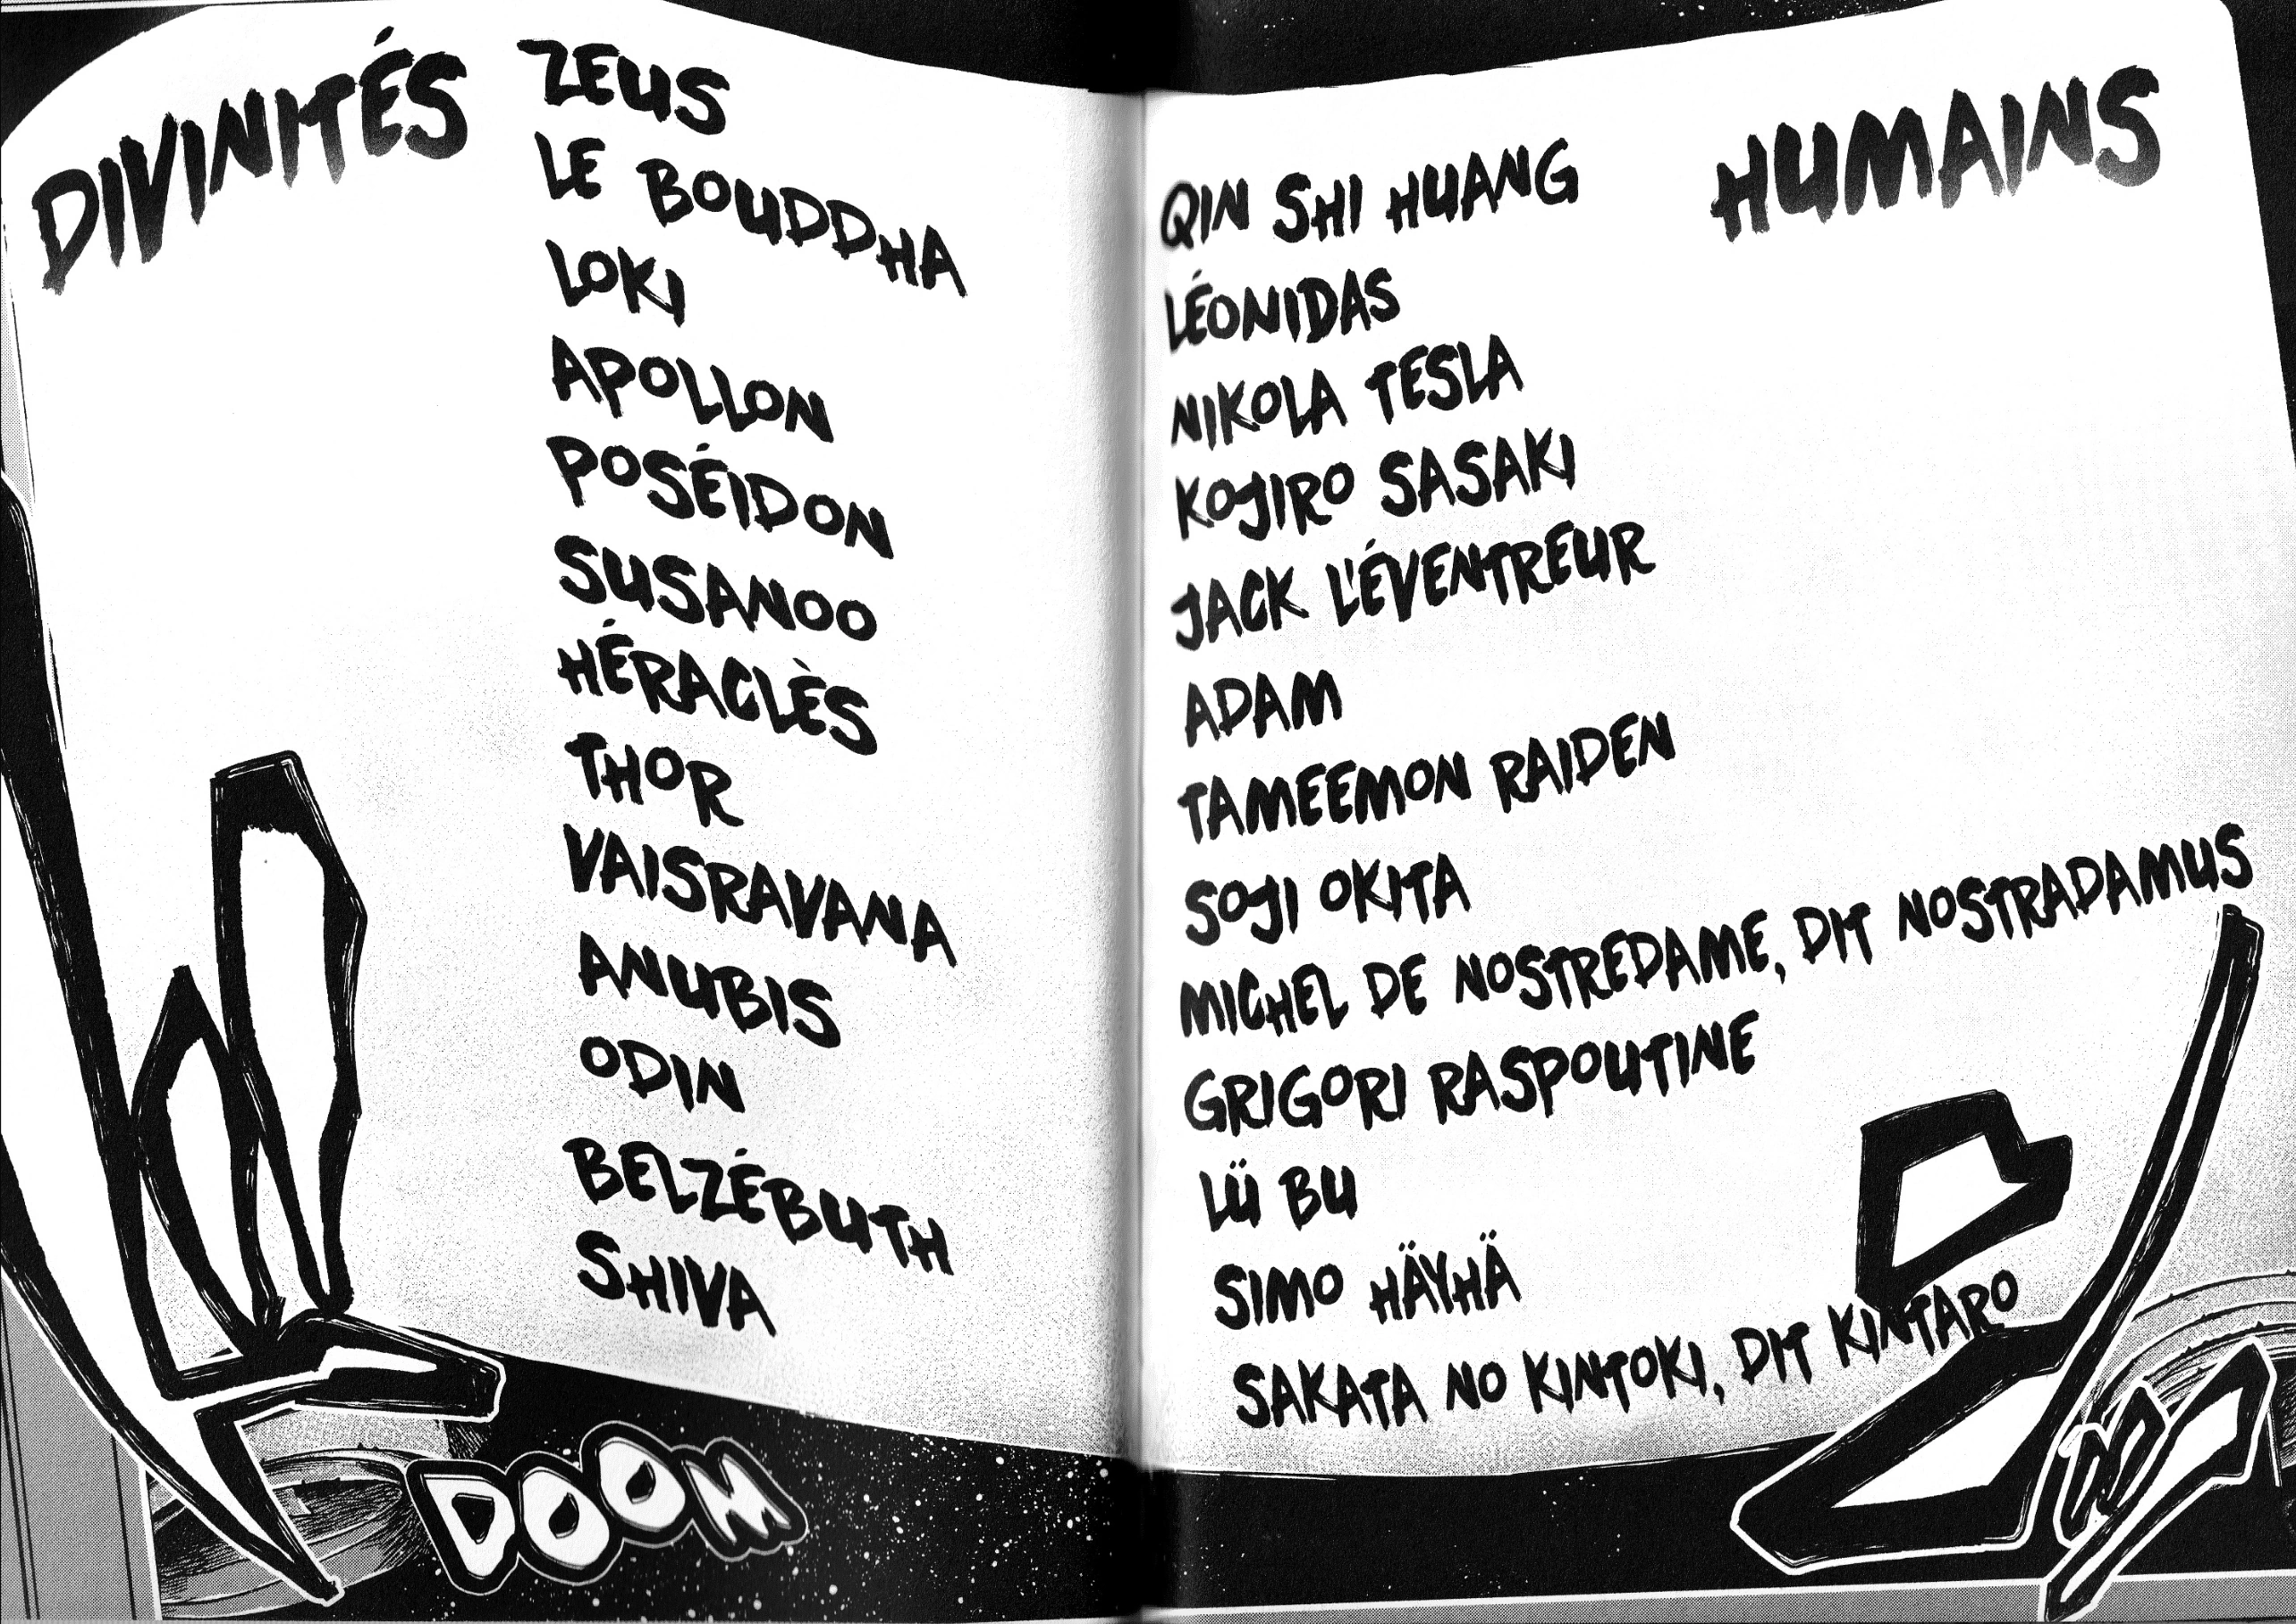 DIVINITÉS
ZEUS
LE BOUDDHA
LOKI
APOLLON
POSÉIDON
SUSANOO
HÉRACLÈS
THOR
VAISRAVANA
ANUBIS
ODIN
BELZÉBUTH
SHIVA
DOOM
HUMAINS
QIN SHI HUANG
LÉONIDAS
NIKOLA TESLA
KOJIRO SASAKI
JACK L'ÉVENTREUR
ADAM
TAMEEMON RAIDEN
SOJI OKITA
MICHEL DE NOSTREDAME, DIT NOSTRADAMUS
GRIGORI RASPOUTINE
LÜ BU
SIMO HÄYHÄ
SAKATA NO KINTOKI, DIT KINTARO